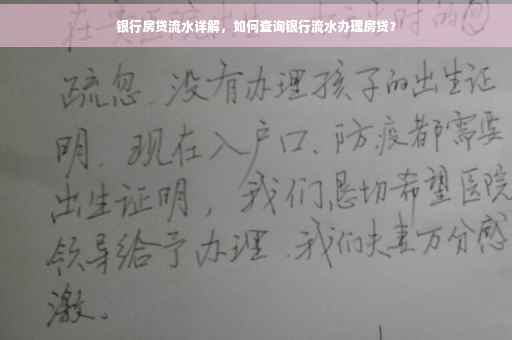 银行房贷流水详解，如何查询银行流水办理房贷？
疏忽、没有办理孩子的出生证
明、现在入户口、防疫都需要
出生证明，我们恳切希望医院
领导给予办理、我们夫妻万分感
激。